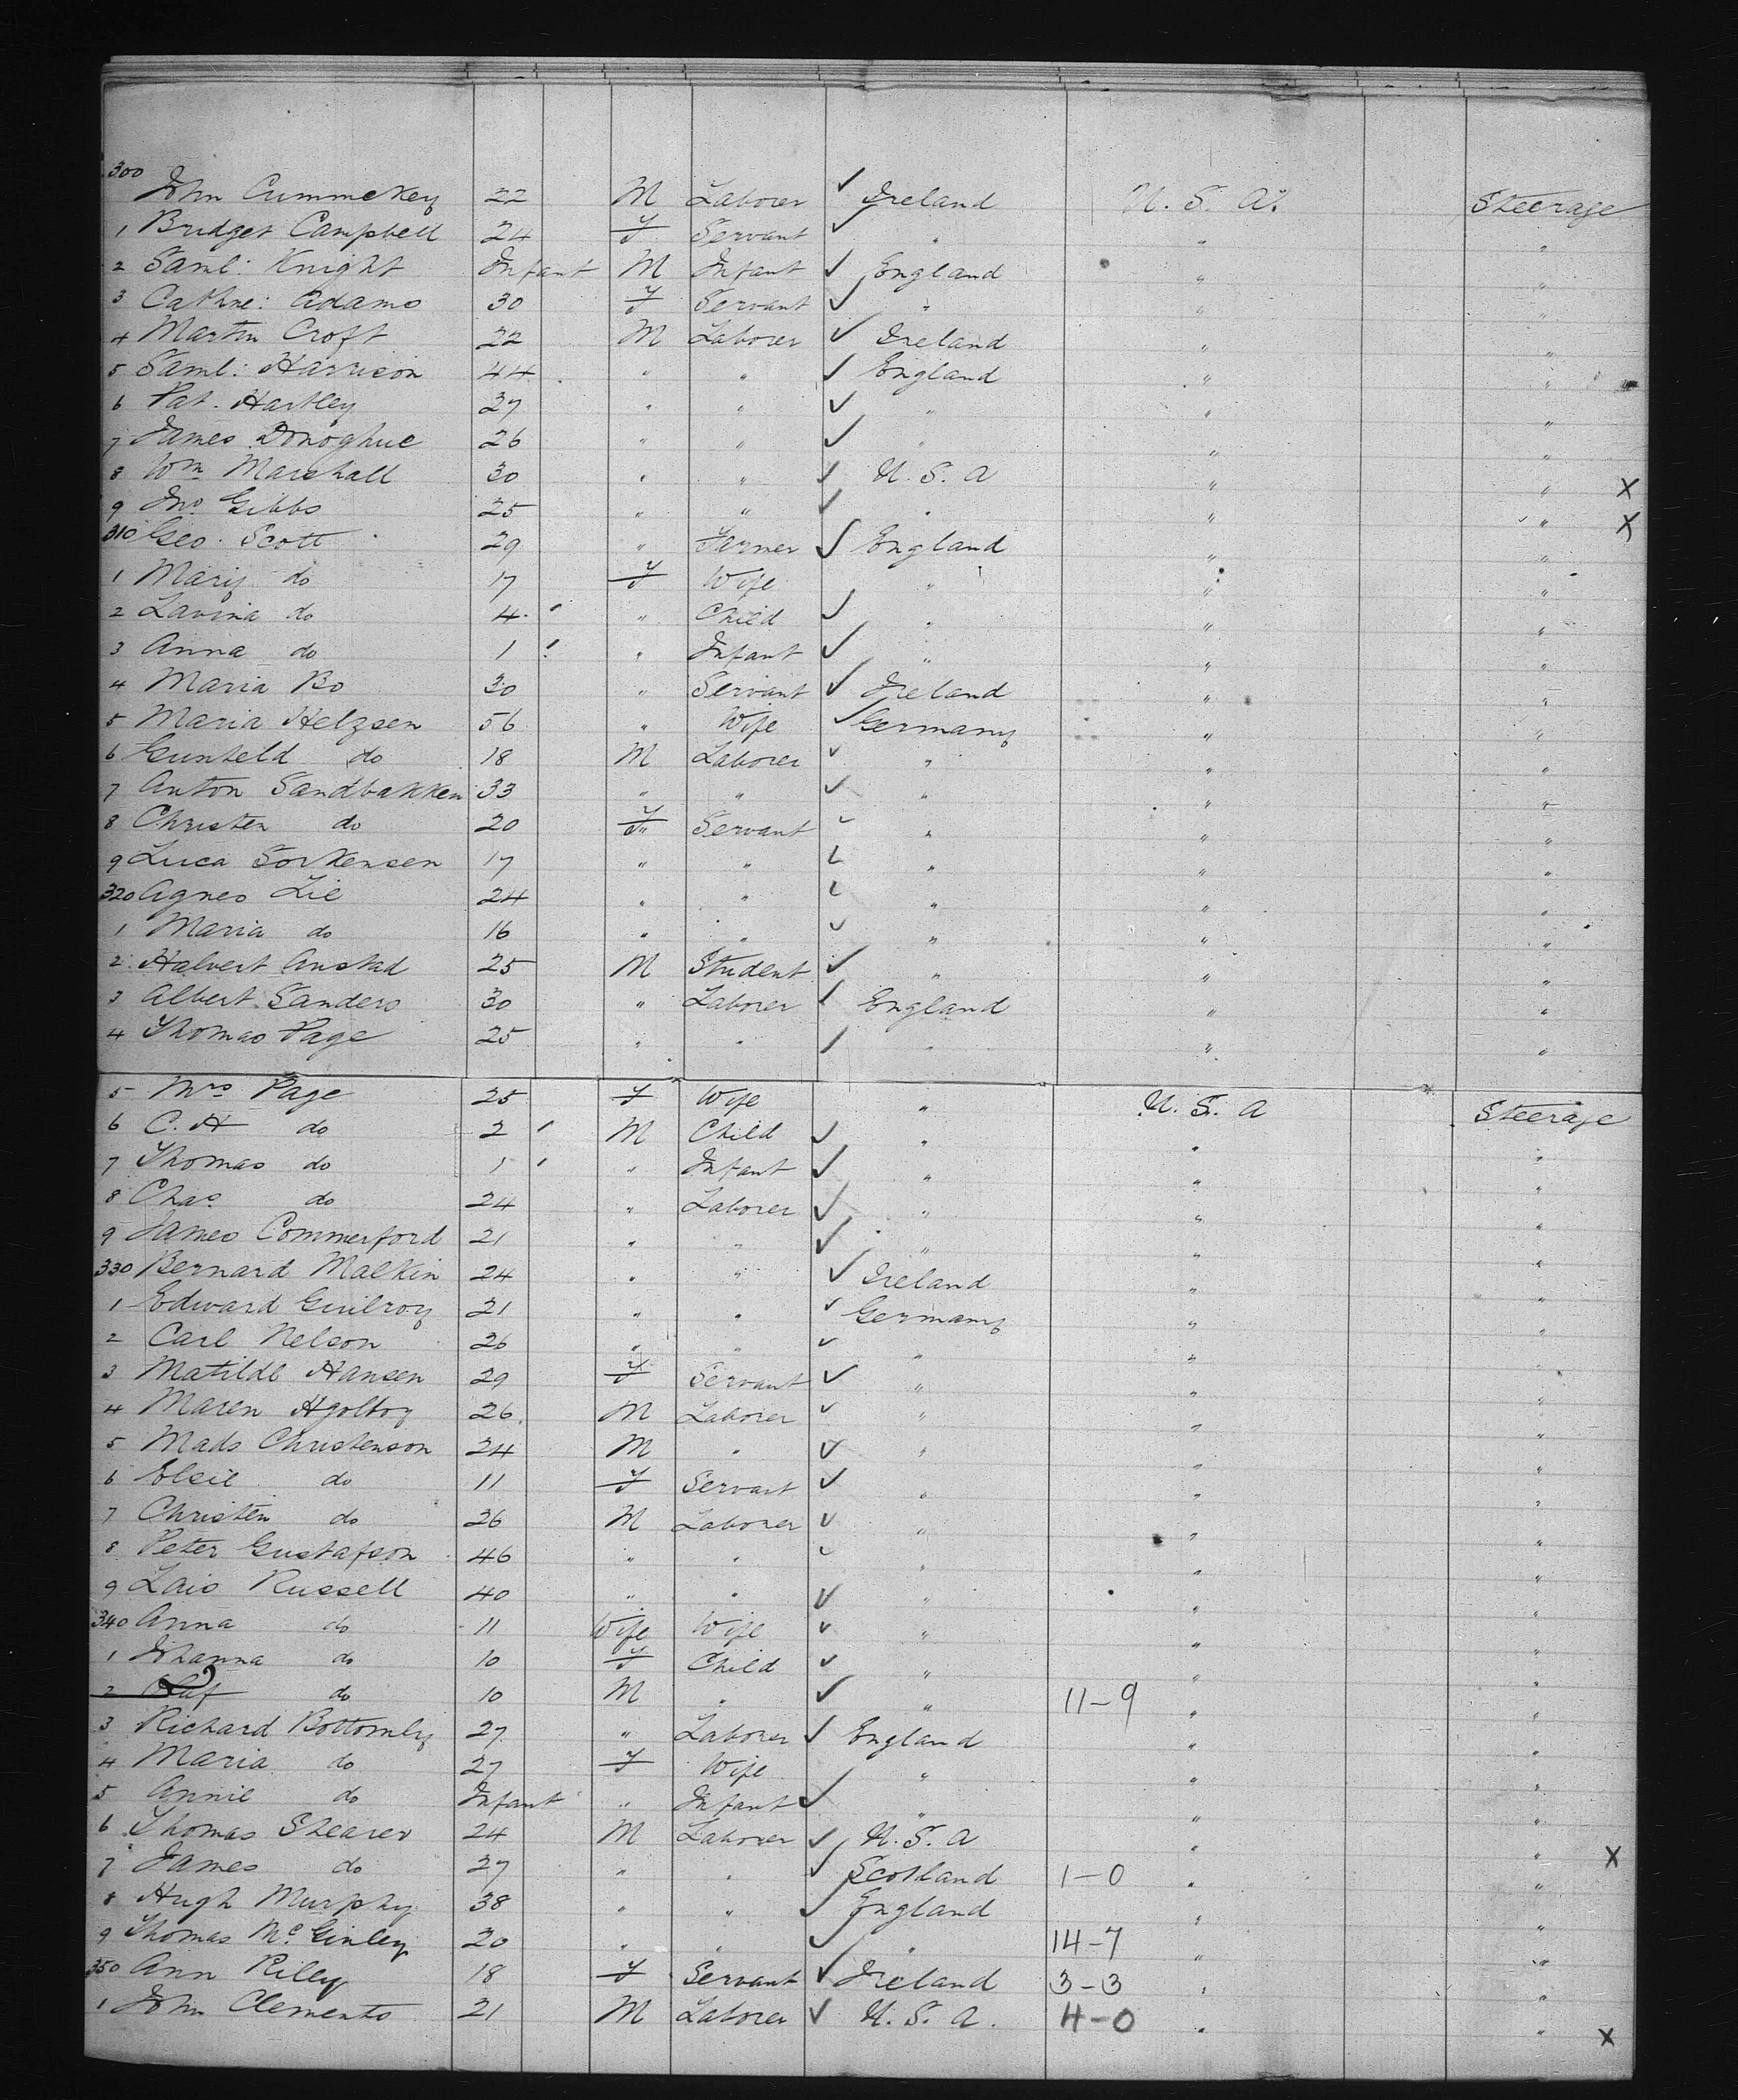 300 John Cummekey 22 M Laborer ✓ Ireland U. S. A. Steerage
1 Bridget Campbell 24 F Servant ✓ " " "
2 Saml: Knight Infant M Infant ✓ England " "
3 Cathne: Adams 30 F Servant ✓ " " "
4 Martin Croft 22 M Laborer ✓ Ireland " "
5 Saml: Harrison 44 " " ✓ England " "
6 Pat. Hartley 27 " " ✓ " " "
7 James Donoghue 26 " " ✓ " " "
8 Wm Marshall 30 " " ✓ U. S. A " " X
9 Jno Gibbs 25 " " ✓ " " " X
310 Geo. Scott 29 " Farmer ✓ England " "
1 Mary do 17 F Wife " " "
2 Lavina do 4 " Child ✓ " " "
3 Anna do 1 " Infant ✓ " " "
4 Maria Bo 30 " Servant ✓ Ireland " "
5 Maria Helzsen 56 " Wife ✓ Germany " "
6 Gunheld do 18 M Laborer ✓ " " "
7 Anton Sandbakken 33 " " ✓ " " "
8 Christen do 20 F Servant ✓ " " "
9 Luca Sorkensen 17 " " ✓ " " "
320 Agnes Lie 24 " " ✓ " " "
1 Maria do 16 " " ✓ " " "
2 Halvert Anstad 25 M Student ✓ " " "
3 Albert Sanders 30 " Laborer ✓ England " "
4 Thomas Page 25 " " ✓ " " "
5 Mrs Page 25 F Wife " U. S. A Steerage
6 C. H do 2 M Child ✓ " " "
7 Thomas do 1 " Infant ✓ " " "
8 Chas do 24 " Laborer ✓ " " "
9 James Commerford 21 " " ✓ " " "
330 Bernard Malkin 24 " " ✓ Ireland " "
1 Edward Guilroy 21 " " ✓ Germany " "
2 Carl Nelson 26 " " ✓ " " "
3 Matilde Hansen 29 F Servant ✓ " " "
4 Maren 26 M Laborer ✓ " " "
5 Mads Christenson 24 M " ✓ " " "
6 Elsie do 11 F Servant ✓ " " "
7 Christen do 26 M Laborer ✓ " " "
8 Peter Gustafson 46 " " ✓ " " "
9 Lais Russell 40 " " ✓ " " "
340 Anna do 11 Wife Wife ✓ " " "
1 Johanna do 10 F Child ✓ " " "
2 Olaf do 10 M " ✓ " 11-9 " "
3 Richard Bottomly 27 " Laborer ✓ England " "
4 Maria do 27 F Wife " " "
5 Annie do Infant " Infant ✓ " " "
6 Thomas Shearer 24 M Laborer ✓ U. S. A " " X
7 James do 27 " " ✓ Scotland 1-0 " "
8 Hugh Murphy 38 " " ✓ England " "
9 Thomas McGinley 20 " " ✓ " 14-7 " "
350 Ann Riley 18 F Servant ✓ Ireland 3-3 " "
1 John Clements 21 M Laborer ✓ U. S. A. 4-0 " " X